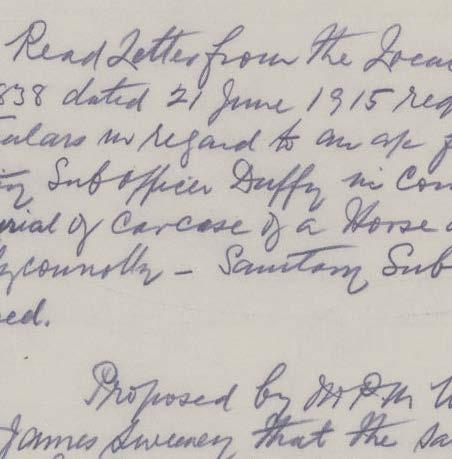 Read Letter from the Loca
838 dated 21 June 1915 req
culars in regard to an a/c f
ry Sub officer Duffy in Con
urial of Carcase of a Horse a
lyconnolly - Sanitary Sub
ed.
Proposed by Mr P M
James Sweeney that the sa